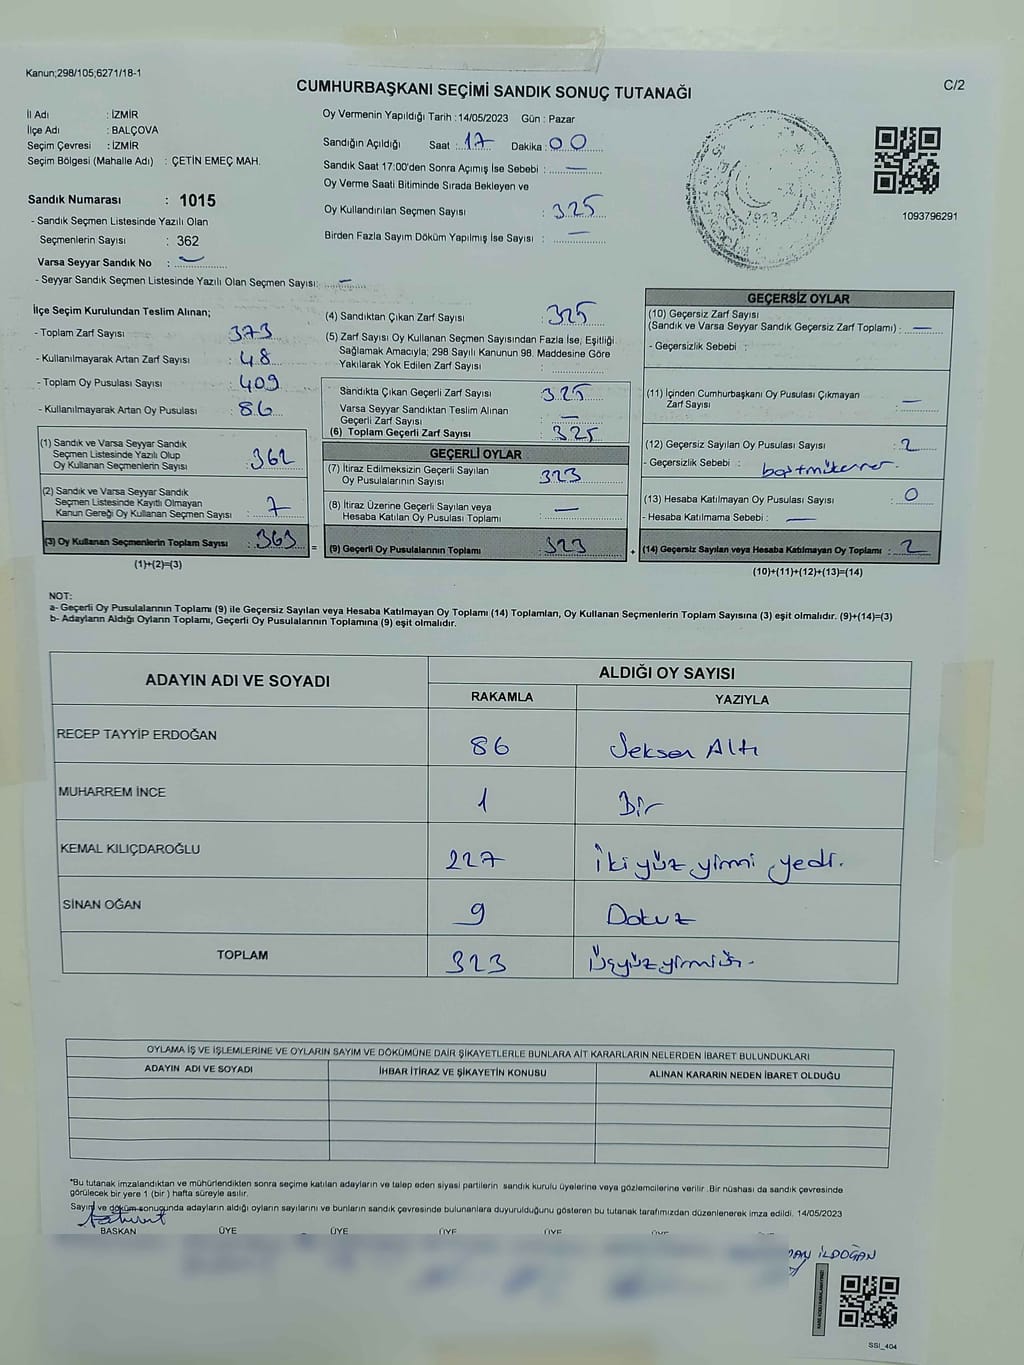 Kanun;298/105;6271/18-1
CUMHURBAŞKANI SEÇİMİ SANDIK SONUÇ TUTANAĞI
C/2
İl Adı : İZMİR
İlçe Adı : BALÇOVA
Seçim Çevresi : İZMİR
Seçim Bölgesi (Mahalle Adı) : ÇETİN EMEÇ MAH.
Sandık Numarası : 1015
- Sandık Seçmen Listesinde Yazılı Olan
Seçmenlerin Sayısı : 362
Varsa Seyyar Sandık No : —
- Seyyar Sandık Seçmen Listesinde Yazılı Olan Seçmen Sayısı: —
Oy Vermenin Yapıldığı Tarih : 14/05/2023 Gün : Pazar
Sandığın Açıldığı Saat : 17 Dakika : 00
Sandık Saat 17:00'den Sonra Açımış İse Sebebi : —
Oy Verme Saati Bitiminde Sırada Bekleyen ve
Oy Kullandırılan Seçmen Sayısı : 325
Birden Fazla Sayım Döküm Yapılmış İse Sayısı : —
1923
1093796291
İlçe Seçim Kurulundan Teslim Alınan;
- Toplam Zarf Sayısı : 373
- Kullanılmayarak Artan Zarf Sayısı : 48
- Toplam Oy Pusulası Sayısı : 409
- Kullanılmayarak Artan Oy Pusulası : 86
(1) Sandık ve Varsa Seyyar Sandık
Seçmen Listesinde Yazılı Olup
Oy Kullanan Seçmenlerin Sayısı : 362
(2) Sandık ve Varsa Seyyar Sandık
Seçmen Listesinde Kayıtlı Olmayan
Kanun Gereği Oy Kullanan Seçmen Sayısı : 7
(3) Oy Kullanan Seçmenlerin Toplam Sayısı : 363 =
(1)+(2)=(3)
(4) Sandıktan Çıkan Zarf Sayısı : 325
(5) Zarf Sayısı Oy Kullanan Seçmen Sayısından Fazla İse, Eşitliği
Sağlamak Amacıyla; 298 Sayılı Kanunun 98. Maddesine Göre
Yakılarak Yok Edilen Zarf Sayısı :
Sandıkta Çıkan Geçerli Zarf Sayısı : 325
Varsa Seyyar Sandıktan Teslim Alınan
Geçerli Zarf Sayısı : —
(6) Toplam Geçerli Zarf Sayısı : 325
GEÇERLİ OYLAR
(7) İtiraz Edilmeksizin Geçerli Sayılan
Oy Pusulalarının Sayısı : 323
(8) İtiraz Üzerine Geçerli Sayılan veya
Hesaba Katılan Oy Pusulası Toplamı : —
(9) Geçerli Oy Pusulalarının Toplamı : 323 +
GEÇERSİZ OYLAR
(10) Geçersiz Zarf Sayısı
(Sandık ve Varsa Seyyar Sandık Geçersiz Zarf Toplamı) : —
- Geçersizlik Sebebi :
(11) İçinden Cumhurbaşkanı Oy Pusulası Çıkmayan
Zarf Sayısı : —
(12) Geçersiz Sayılan Oy Pusulası Sayısı : 2
- Geçersizlik Sebebi :
(13) Hesaba Katılmayan Oy Pusulası Sayısı : 0
- Hesaba Katılmama Sebebi : —
(14) Geçersiz Sayılan veya Hesaba Katılmayan Oy Toplamı : 2
(10)+(11)+(12)+(13)=(14)
NOT:
a- Geçerli Oy Pusulalarının Toplamı (9) ile Geçersiz Sayılan veya Hesaba Katılmayan Oy Toplamı (14) Toplamları, Oy Kullanan Seçmenlerin Toplam Sayısına (3) eşit olmalıdır. (9)+(14)=(3)
b- Adayların Aldığı Oyların Toplamı, Geçerli Oy Pusulalarının Toplamına (9) eşit olmalıdır.
ADAYIN ADI VE SOYADI
ALDIĞI OY SAYISI
RAKAMLA YAZIYLA
RECEP TAYYİP ERDOĞAN 86 Seksen Altı
MUHARREM İNCE 1 Bir
KEMAL KILIÇDAROĞLU 227 İkiyüz yirmi yedi.
SİNAN OĞAN 9 Dokuz
TOPLAM 323 Üçyüzyirmiüç.
OYLAMA İŞ VE İŞLEMLERİNE VE OYLARIN SAYIM VE DÖKÜMÜNE DAİR ŞİKAYETLERLE BUNLARA AİT KARARLARIN NELERDEN İBARET BULUNDUKLARI
ADAYIN ADI VE SOYADI İHBAR İTİRAZ VE ŞİKAYETİN KONUSU ALINAN KARARIN NEDEN İBARET OLDUĞU
"Bu tutanak imzalandıktan ve mühürlendikten sonra seçime katılan adayların ve talep eden siyasi partilerin sandık kurulu üyelerine veya gözlemcilerine verilir .Bir nüshası da sandık çevresinde
görülecek bir yere 1 (bir ) hafta süreyle asılır.
Sayım ve döküm sonucunda adayların aldığı oyların sayılarını ve bunların sandık çevresinde bulunanlara duyurulduğunu gösteren bu tutanak tarafımızdan düzenlenerek imza edildi. 14/05/2023
BAŞKAN ÜYE ÜYE ÜYE ÜYE ÜYE
İLDOĞAN
SSI_404